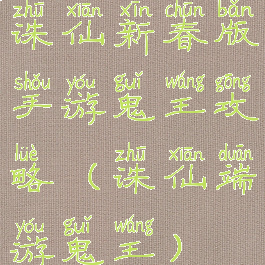 zhū xiān xīn chūn bǎn
诛仙新春版
shǒu yóu guǐ wáng gōng
手游鬼王攻
lüè zhū xiān duān
略（诛仙端
yóu guǐ wáng
游鬼王）